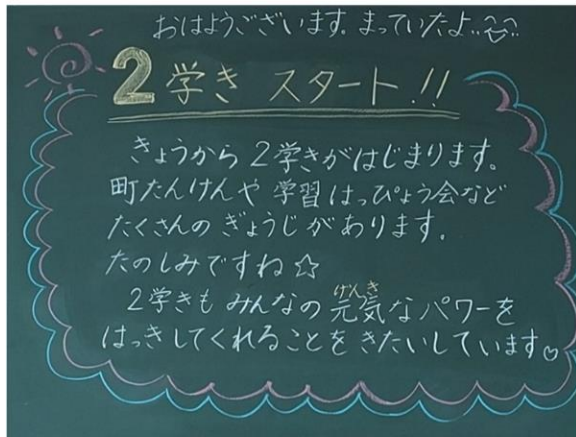 おはようございます。まっていたよ‥^^‥
2学き スタート!!
きょうから 2学きがはじまります。
町たんけんや 学習はっぴょう会など
たくさんの ぎょうじが あります。
たのしみですね☆
2学きも みんなの 元気(げんき)な パワーを
はっきしてくれることを きたいしています♡